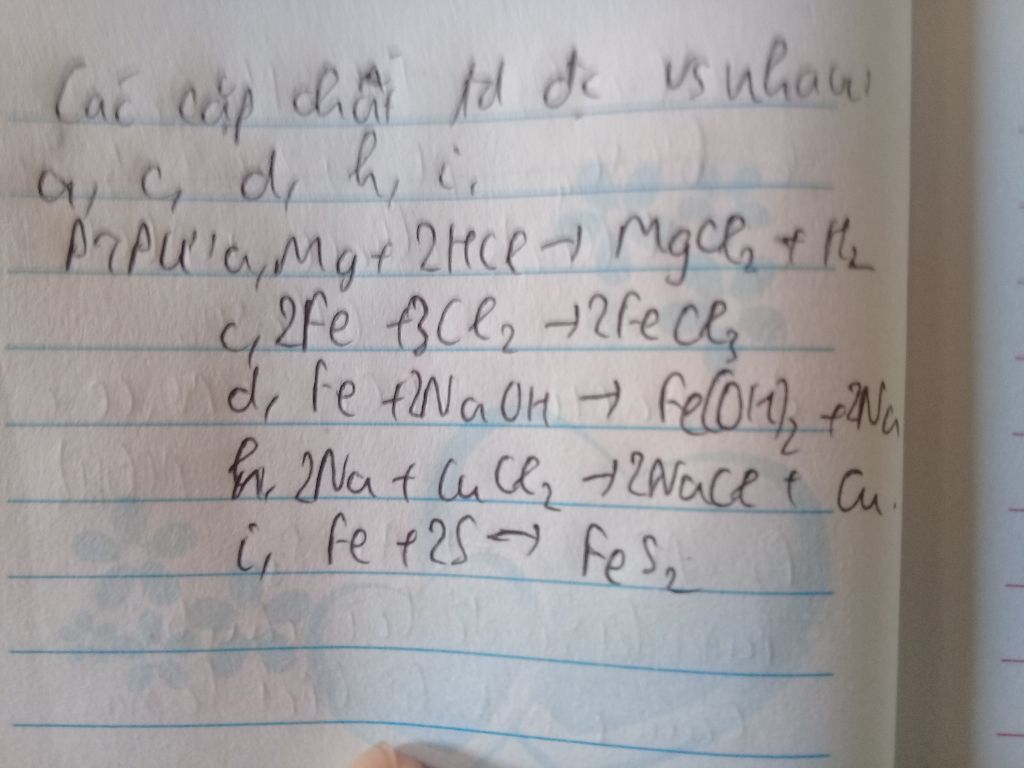 Các cặp chất td đc vs nhau:
a, c, d, h, i.
PTPU: a, Mg + 2HCl → MgCl₂ + H₂
c, 2Fe + 3Cl₂ → 2FeCl₃
d, Fe + 2NaOH → Fe(OH)₂ + 2Na
h, 2Na + CuCl₂ → 2NaCl + Cu.
i, Fe + 2S → FeS₂